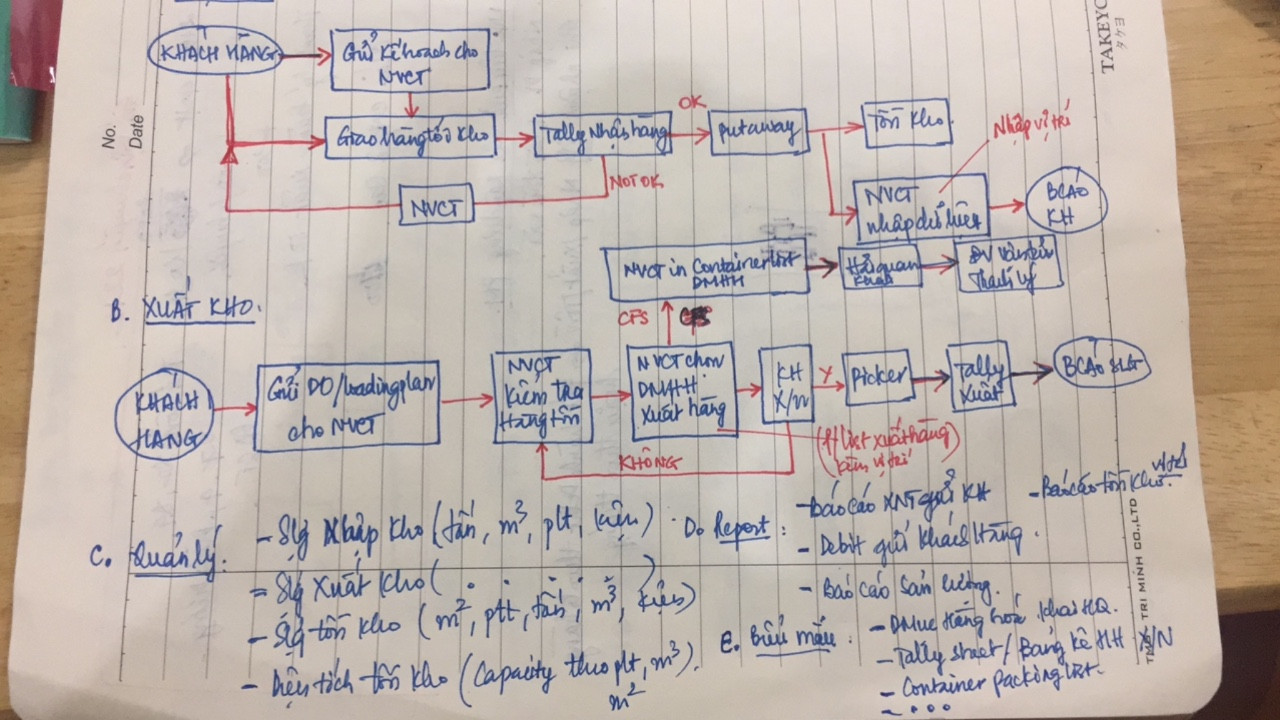 TAKEYO
No.
Date
KHÁCH HÀNG
Gửi kế hoạch cho
NVCT
Giao hàng tới kho
Tally Nhận hàng
OK
putaway
Tồn kho
Nhập vị trí
NOT OK
NVCT
NVCT
nhập dữ liệu
BCÁO
KH
NVCT in Container list
DMHH
Hải quan
ĐV Vận tải
Thanh lý
B. XUẤT KHO.
CFS
KHÁCH
HÀNG
Gửi DO/loading plan
cho NVCT
NVCT
kiểm tra
Hàng tồn
NVCT chọn
DMHH
Xuất hàng
KH
X/N
Y
Picker
Tally
Xuất
BCÁO SLG
KHÔNG
list xuất hàng
kèm vị trí
C. Quản lý:
- Slg Nhập kho (tấn, m³, plt, kiện).
- Slg Xuất kho (
- Slg tồn kho (m², plt, tấn, m³, kiện)
- Diện tích tồn kho (Capacity theo plt, m³).
m²
D. Report:
- Báo cáo XNT gửi KH
- Báo cáo tồn kho vị trí.
- Debit gửi Khách Hàng.
- Báo cáo sản lượng.
E. Biểu mẫu:
- DMuc Hàng hoá khai HQ.
- Tally sheet / Bảng kê HH X/N
- Container packing list.
- ...
TRI MINH CO.,LTD